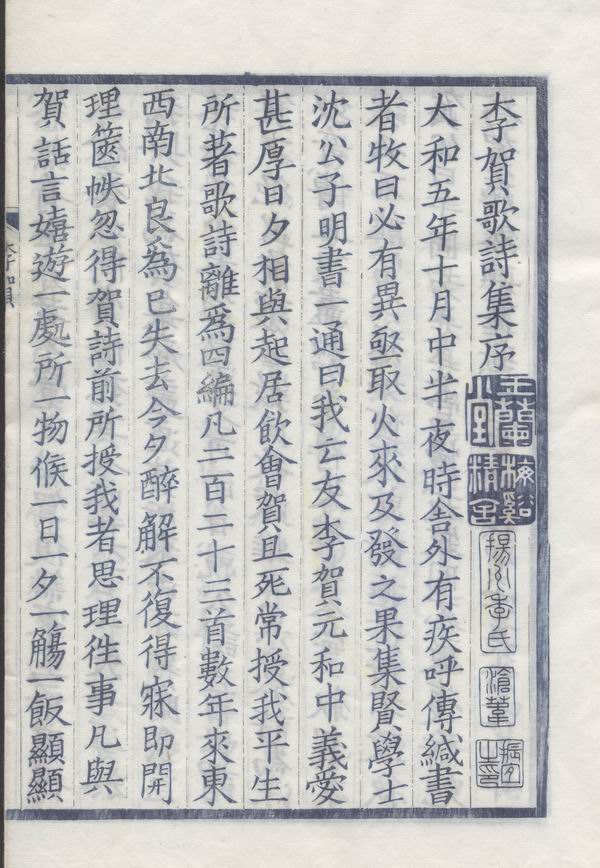 李賀歌詩集序
玉蘭堂
梅谿精舍
揚州季氏
滄葦
振宜之印
大和五年十月中半夜時舍外有疾呼傳緘書
者牧曰必有異亟取火來及發之果集賢學士
沈公子明書一通曰我亡友李賀元和中義愛
甚厚日夕相與起居飲會賀且死常授我平生
所著歌詩離爲四編凡二百二十三首數年來東
西南北良爲已失去今夕醉解不復得寐即開
理篋帙忽得賀詩前所授我者思理往事凡與
賀話言嬉遊一處所一物候一日一夕一觴一飯顯顯